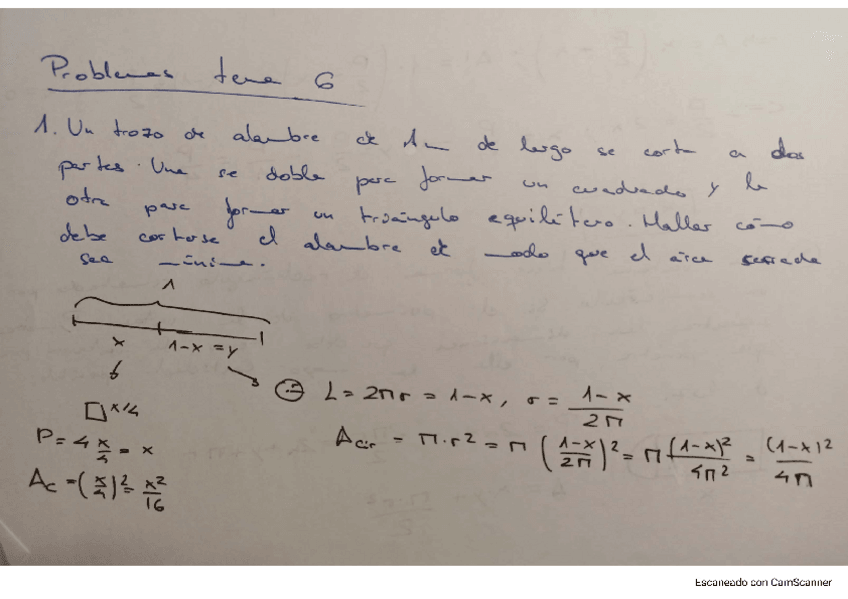 Problemas tema 6
1. Un trozo de alambre de 1m de largo se corta a dos
partes. Una se dobla para formar un cuadrado y la
otra para formar un triángulo equilátero. Hallar cómo
debe cortarse el alambre de modo que el área cerrada
sea mínima.
1
x 1-x = y
L = 2πr = 1-x, r = \frac{1-x}{2π}
x/4
P = 4 \frac{x}{4} = x
A_{cir} = π·r² = π (\frac{1-x}{2π})² = π \frac{(1-x)²}{4π²} = \frac{(1-x)²}{4π}
A_c = (\frac{x}{4})² = \frac{x²}{16}
Escaneado con CamScanner